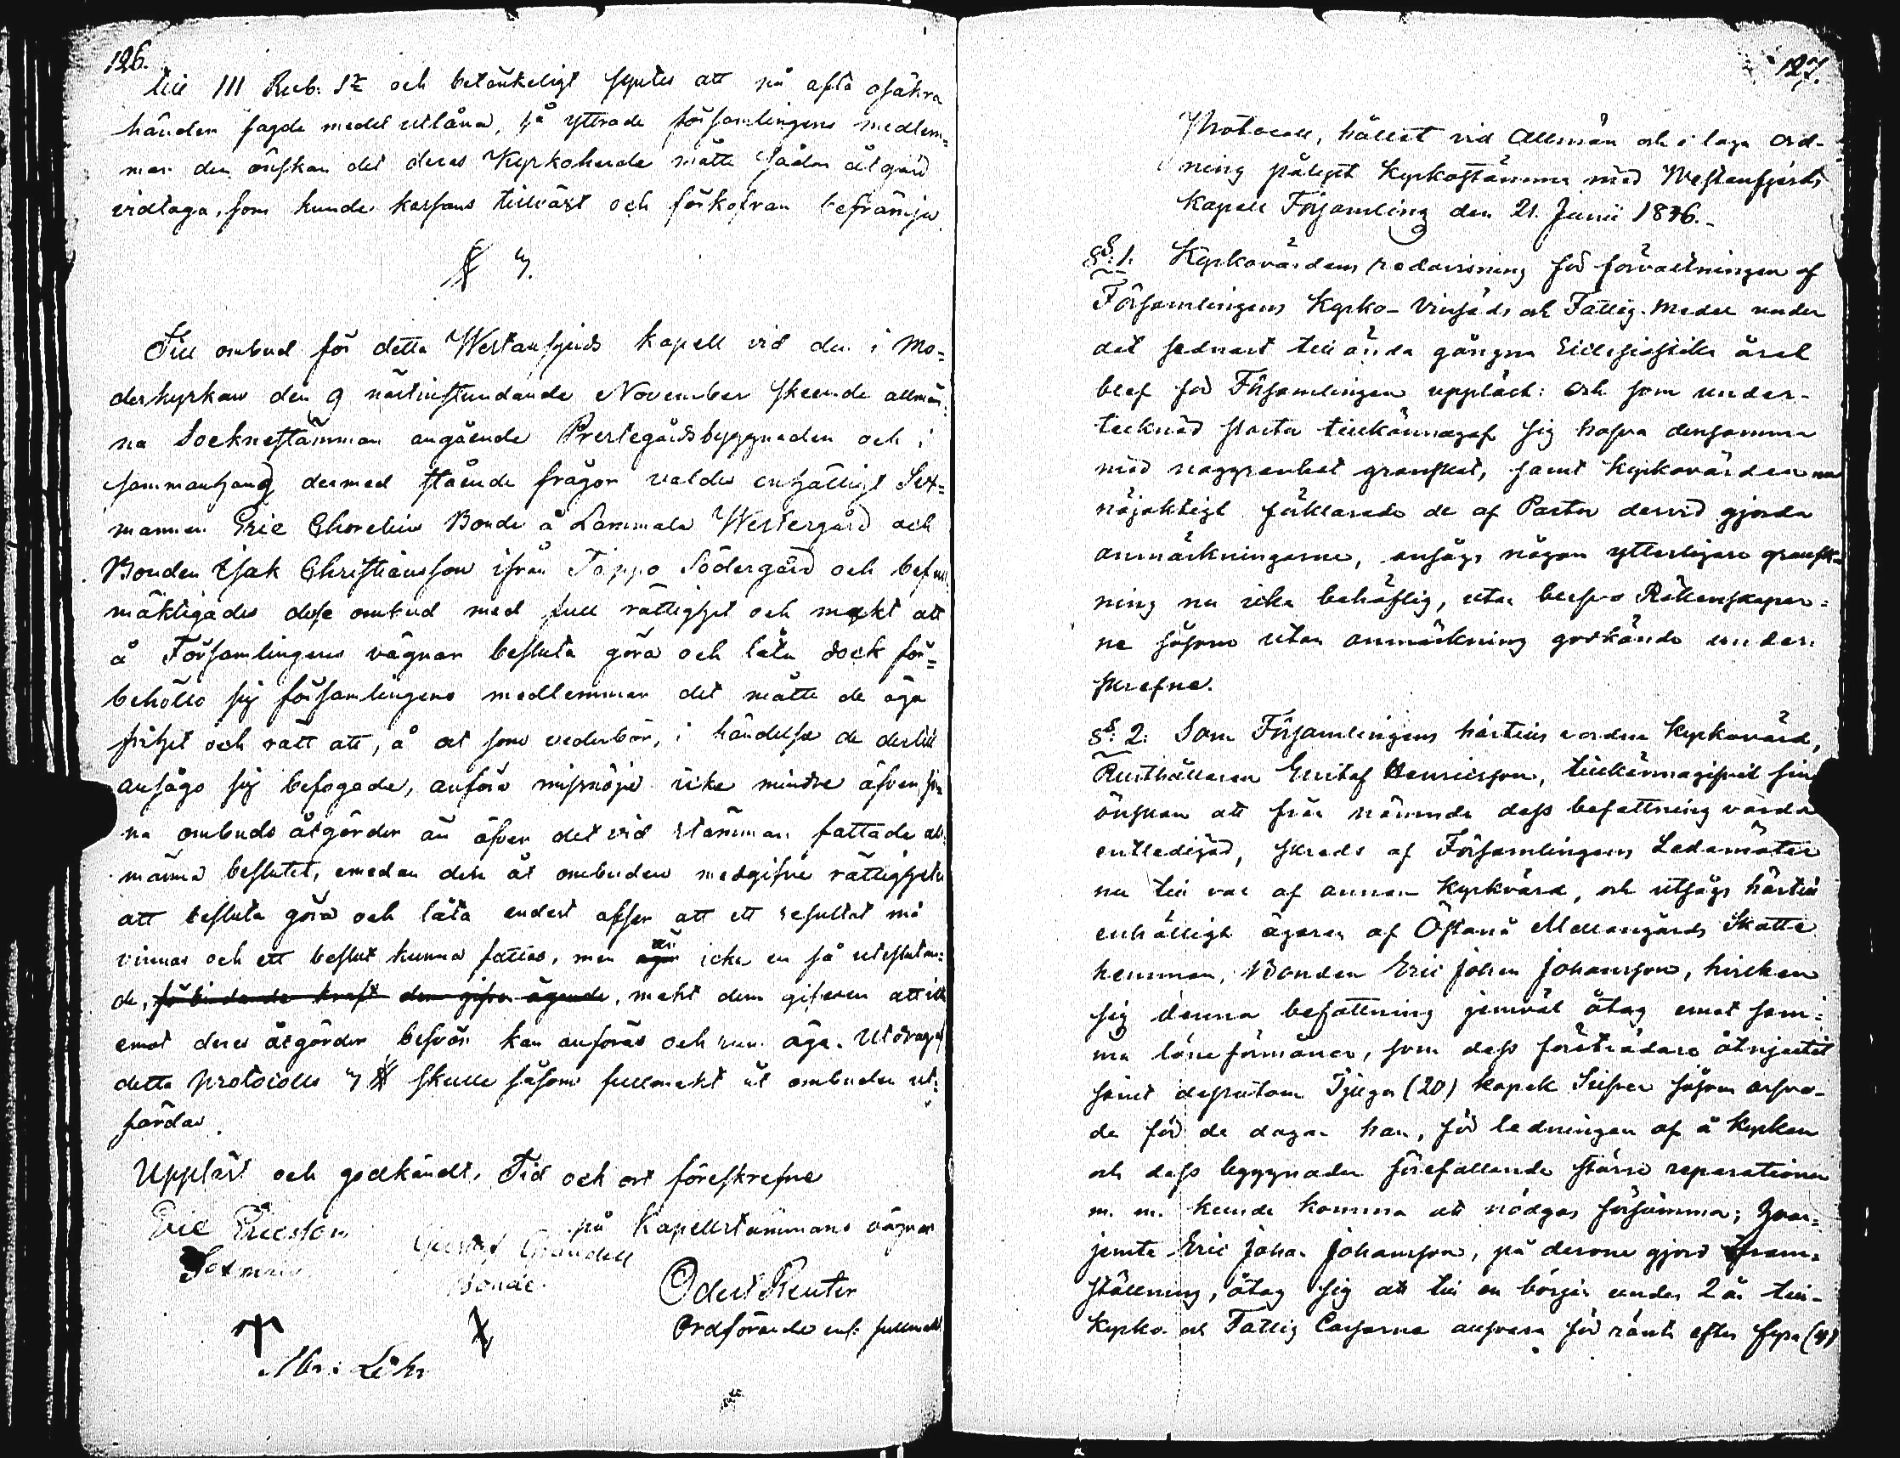 126.
till 111 Rub. S:r och betänkeligt syntes att på ofta osäkra
händer sagde medel utlåna, så yttrade församlingens medlem-
mar den önskan det deras Kyrkoherde måtte sådan åtgärd
vidtaga, som kunde kassans tillväxt och förkofran befrämja.
§ 7.
Till ombud för detta Westanfjerds kapell vid den i Mo-
derkyrkan den 9 nästinstundande November skeende allmän-
na Socknestämman angående Prestegårdsbyggnaden och i
sammanhang dermed stående frågor valdes enhälligt Sex-
mannen Eric Thorelius Bonde å Lammala Westergård och
Bonden Isak Christiansson ifrån Tappo Södergård och befull-
mäktigades desse ombud med full rättighet och makt att
å Församlingens vägnar besluta göra och låta dock för-
behöllo sig församlingens medlemmar det måtte de äga
frihet och rätt att, å ort som vederbör, i händelse de dertill
ansågo sig befogade, anföra missnöje icke mindre äfver si-
na ombuds åtgärder än äfver det vid stämman fattade all-
männa beslutet, emedan den åt ombuden medgifne rättigheten
att besluta göra och låta endast afser att ett resultat må
vinnas och ett beslut kunna fattas, men är icke en så uteslutan-
de, förbindande kraft dem gifven ägande, makt dem gifven att ick
emot deras åtgärder besvär kan anföras och rum äga. Utdrag af
detta protocolls 7 § skulle såsom fullmakt åt ombuden ut-
färdas.
Uppläst och godkändt. Tid och ort föreskrefne
på Kapellstämmans vägnar
Eric Ericsson Gustaf Grandell
Sexman Bonde
Odert Reuter
Ordförande enl: fullmakt
Abr: Löhr
127.
Protocoll, hållet vid Allmän och i laga ord-
ning pålyst Kyrkostämma med Westanfjerds
Kapell Församling den 21. Junii 1846.
§: 1. Kyrkovärdens redovisning för förvaltningen af
Församlingens Kyrko- Vinsäds och Fattig-Medel under
det sednast till ända gångna Ecclesiastika året
blef för Församlingen uppläst: och som under-
tecknad Pastor tillkännagaf sig hafva densamma
med noggranhet granskat, samt Kyrkovärden nu
nöjaktigt förklarade de af Pastor dervid gjorda
anmärkningarne, ansågs någon ytterligare gransk-
ning nu icke behöflig, utan blefvo Räkenskaper-
ne såsom utan anmärkning godkände under-
skrefne.
§: 2: Som Församlingens härtills vordne Kyrkovärd,
Rusthållaren Gustaf Henricsson, tillkännagifvit sin
önskan att från nämnde dess befattning varda
entledigad, skreds af Församlingens Ledamöter
nu till val af annan Kyrkvärd, och utsågs härtill
enhälligt ägaren af Östanå Mellangårds Skatte
hemman, Bonden Eric Johan Johansson, hvilken
sig denna befattning jemväl åtog emot sam-
ma löneförmåner, som dess företrädare åtnjutit
samt dessutom Tjugu (20) kopek Silfver såsom arfvo-
de för de dagar han, för ledningen af å kyrkan
och dess byggnader förefallande större reparationer
m. m. kunde komma att nödgas försumma; hvar-
jemte Eric Johan Johansson, på derom gjord fram-
ställning, åtog sig att till en början under 2 år till
Kyrko- och Fattig Cassorna ansvara för ränta efter fyra (4)